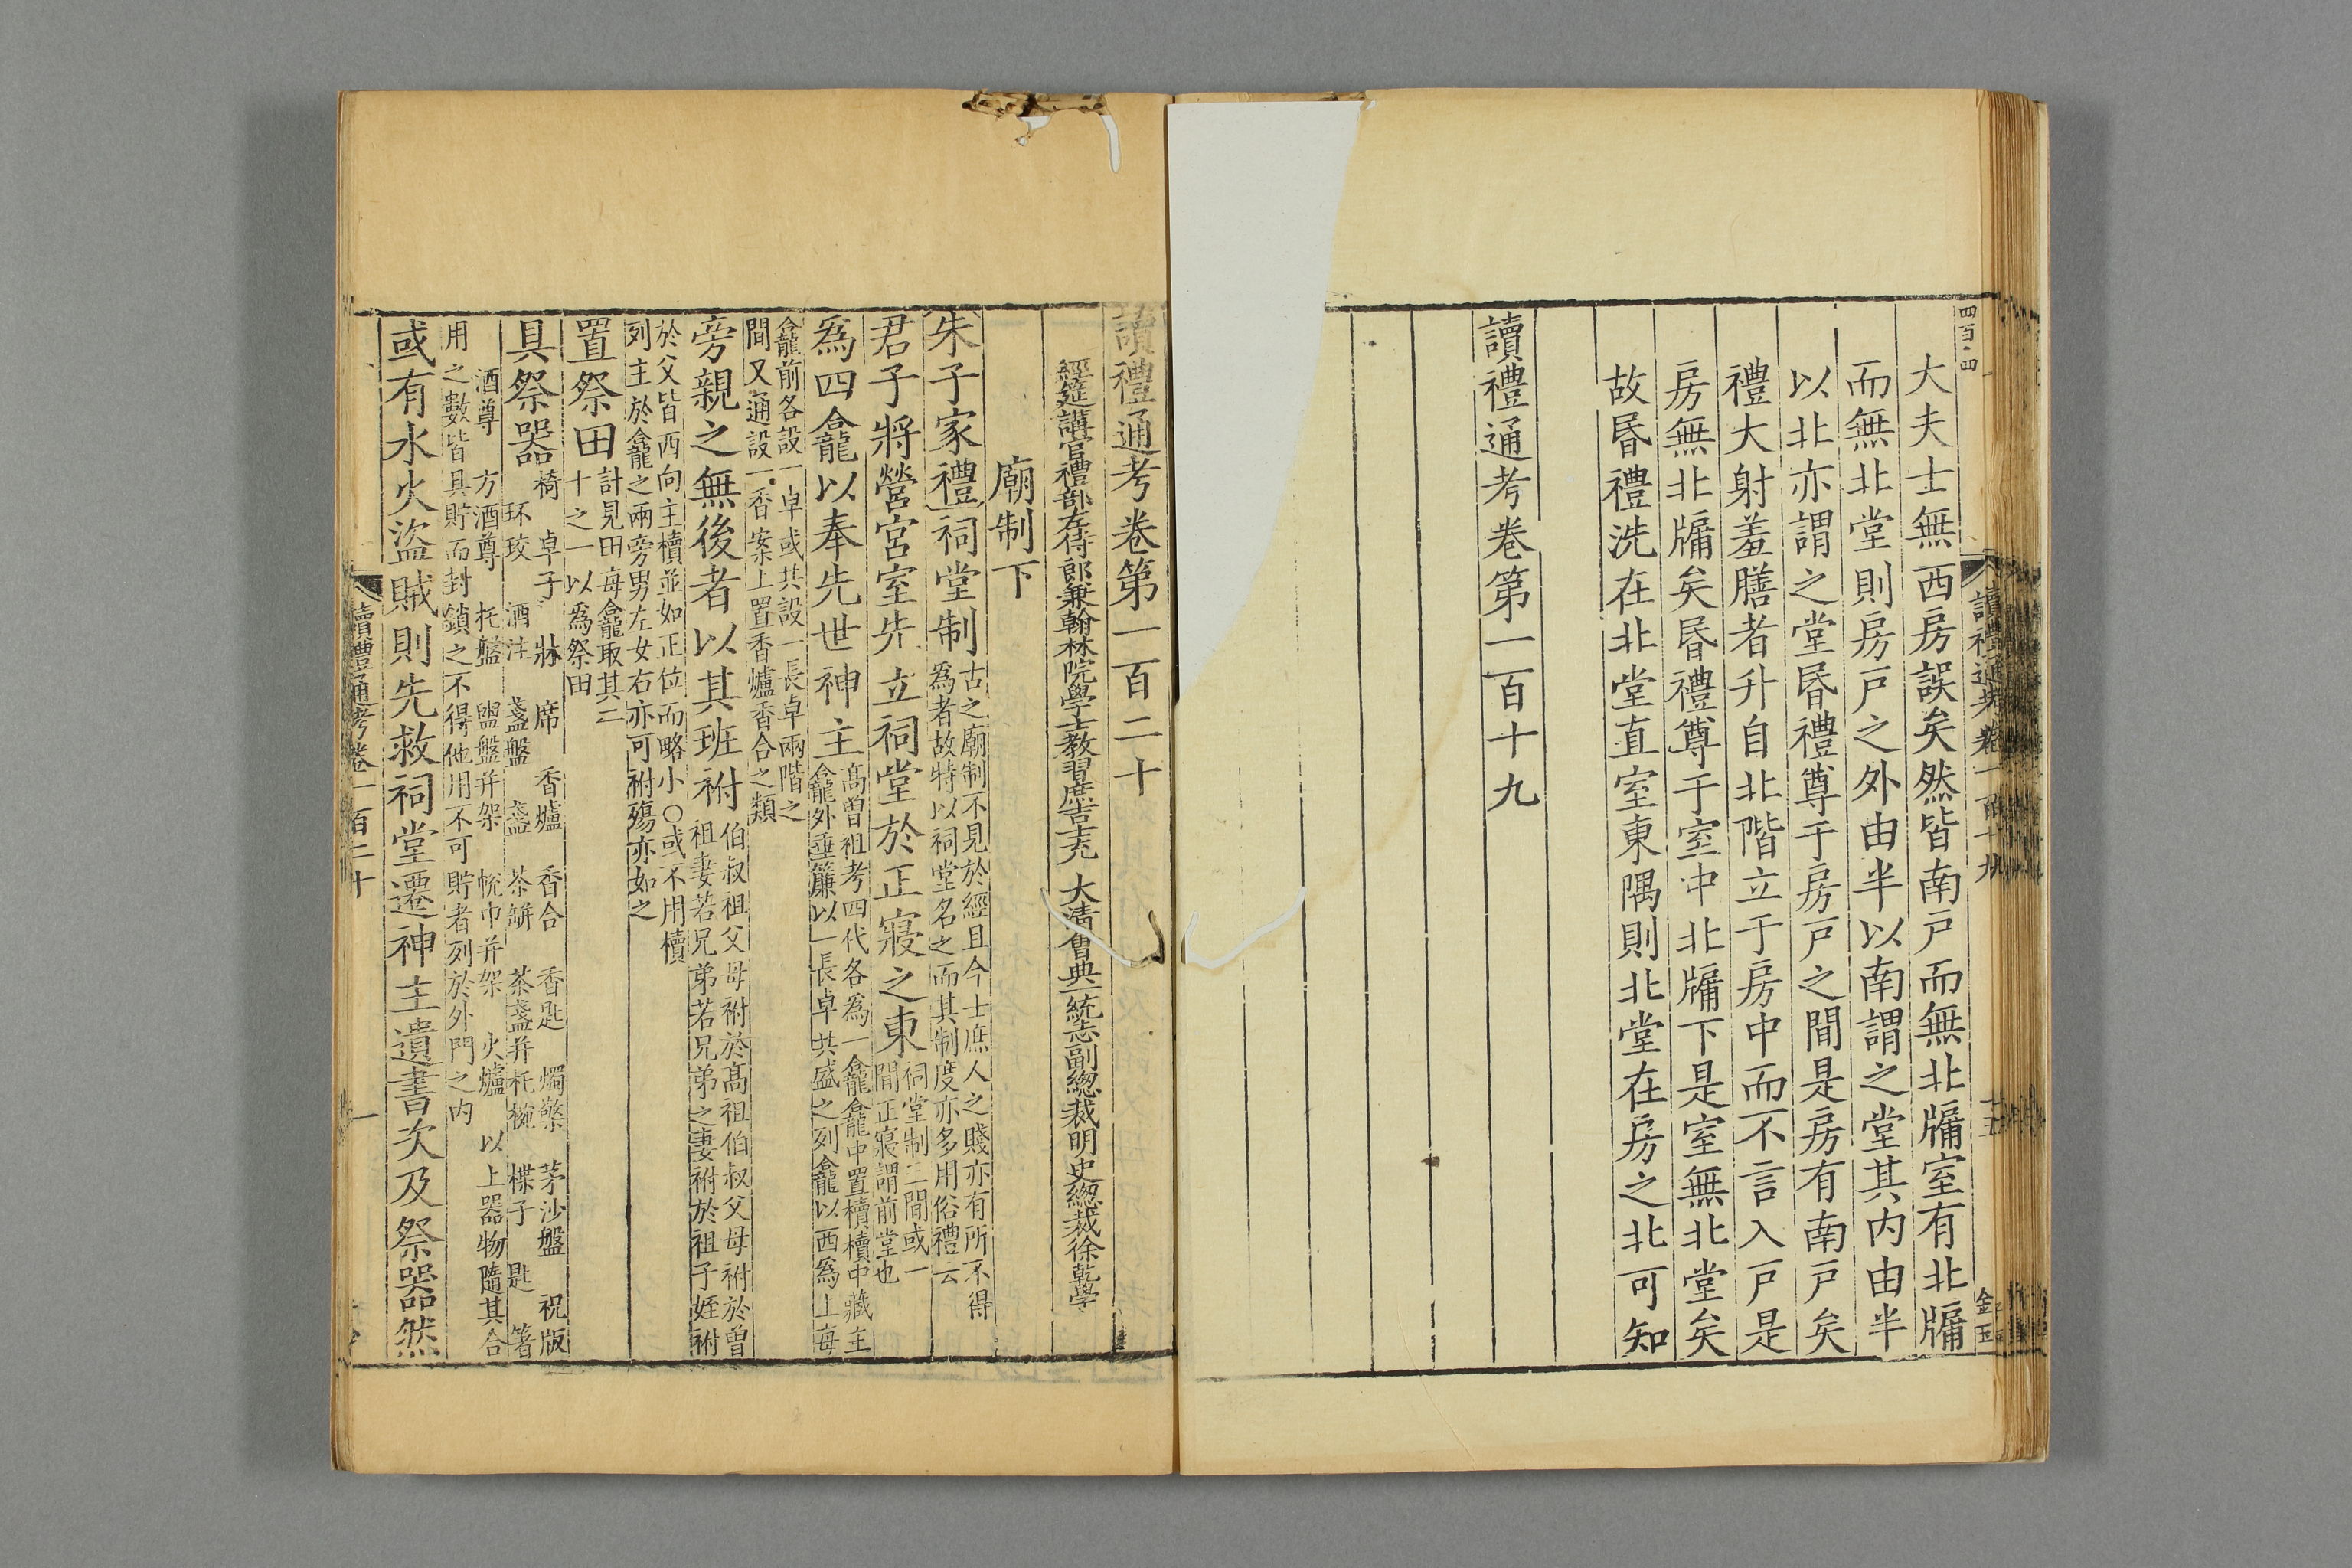 四百四
讀禮通考卷一百十九
十五
金玉
大夫士無西房誤矣然皆南戸而無北牖室有北牖
而無北堂則房戸之外由半以南謂之堂其内由半
以北亦謂之堂昏禮尊于房戸之間是房有南戸矣
禮大射羞膳者升自北階立于房中而不言入戸是
房無北牖矣昏禮尊于室中北牖下是室無北堂矣
故昏禮洗在北堂直室東隅則北堂在房之北可知
讀禮通考卷第一百十九
讀禮通考卷第一百二十
經筵講官禮部左侍郎兼翰林院學士教習庶吉士充 大清會典一統志副總裁明史總裁徐乾學
廟制下
朱子家禮祠堂制
古之廟制不見於經且今士庶人之賤亦有所不得
爲者故特以祠堂名之而其制度亦多用俗禮云
君子將營宮室先立祠堂於正寢之東
祠堂制三間或一
間正寢謂前堂也
爲四龕以奉先世神主
高曾祖考四代各爲一龕龕中置櫝櫝中藏主
龕外垂簾以一長卓共盛之列龕以西爲上每
龕前各設一卓或共設一長卓兩階之
間又通設一香案上置香爐香合之類
旁親之無後者以其班祔
伯叔祖父母祔於高祖伯叔父母祔於曾
祖妻若兄弟若兄弟之妻祔於祖子姪祔
於父皆西向主櫝並如正位而略小○或不用櫝
列主於龕之兩旁男左女右亦可祔殤亦如之
置祭田
計見田每龕取其二
十之一以爲祭田
具祭器
椅 卓子 牀 席 香爐 香合 香匙 燭檠 茅沙盤 祝版
环珓 酒注 盞盤 盞 茶缾 茶盞并托椀 楪子 匙 箸
酒尊 方酒尊 托盤 盥盤并架 帨巾并架 火爐 以上器物隨其合
用之數皆具貯而封鎖之不得他用不可貯者列於外門之内
或有水火盜賊則先救祠堂遷神主遺書次及祭器然
讀禮通考卷一百二十
一